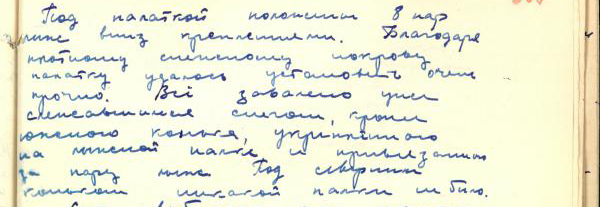 Под палаткой положены 8 пар
лыж вниз креплениями. Благодаря
плотному снежному покрову
палатку удалось установить очень
прочно. Всё завалено уже
слежавшимся снегом, кроме
южного конька, укреплённого
на лыжной палке и привязанного
за пару лыж. Под северным
коньком никакой палки не было.